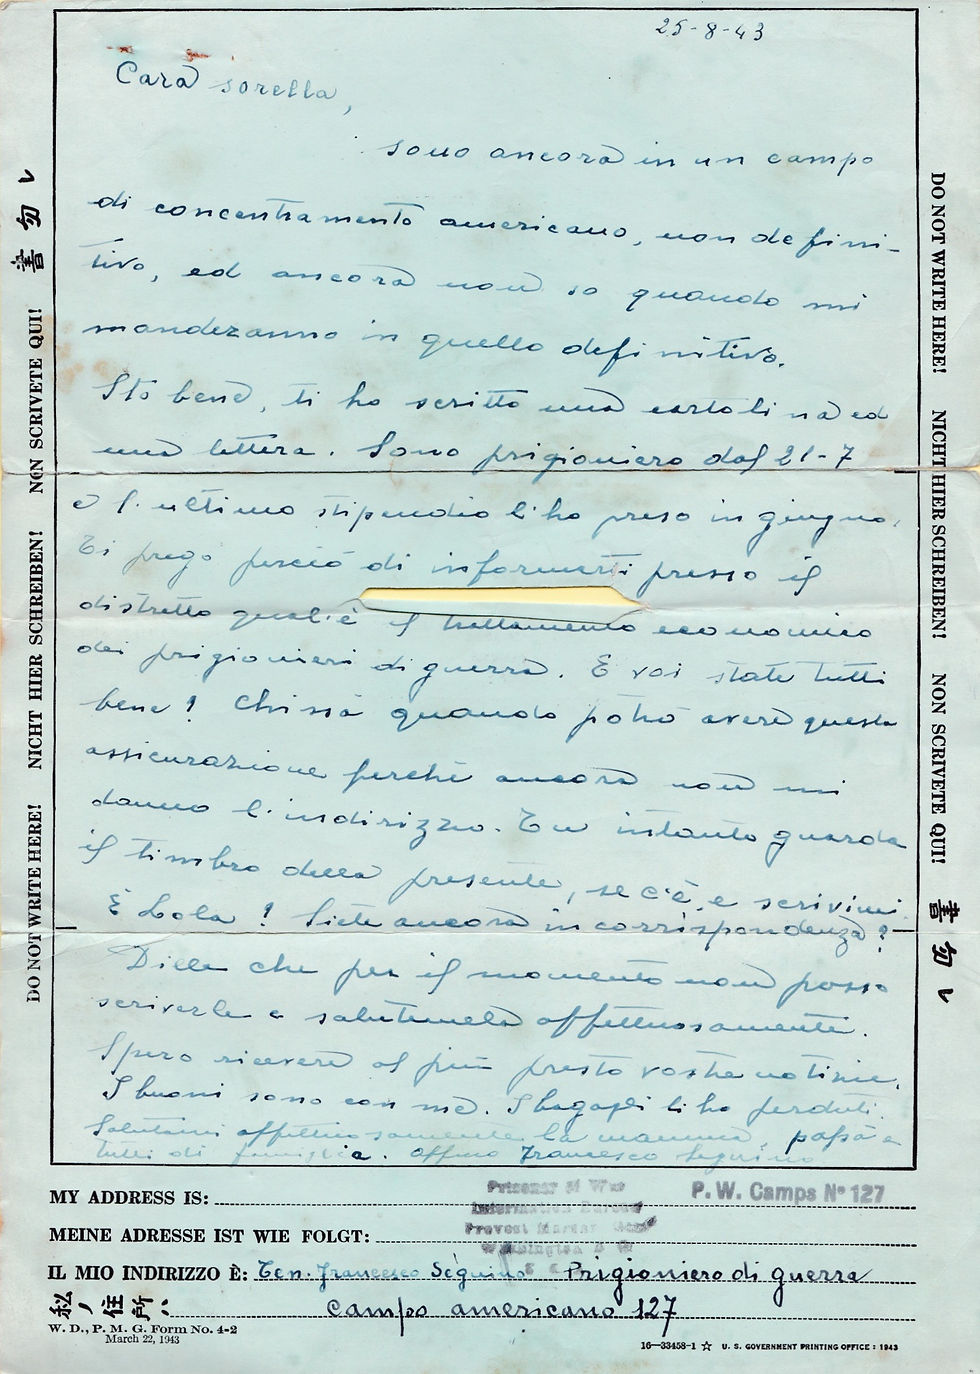 25-8-43
Cara sorella,
sono ancora in un campo
di concentramento americano, non defini-
tivo, ed ancora non so quando mi
manderanno in quello definitivo.
Sto bene, ti ho scritto una cartolina ed
una lettera. Sono prigioniero dal 21-7
e l'ultimo stipendio l'ho preso in giugno.
Ti prego perciò di informarti presso il
distretto qual'è il trattamento economico
dei prigionieri di guerra. E voi state tutti
bene? Chissà quando potrò avere questa
assicurazione perchè ancora non mi
danno l'indirizzo. Tu intanto guarda
il timbro della presente, se c'è, e scrivimi.
E Lola? Siete ancora in corrispondenza?
Dille che per il momento non posso
scriverle e salutamela affettuosamente.
Spero ricevere al più presto vostre notizie.
I buoni sono con me. I bagagli li ho perduti.
Salutami affettuosamente la mamma, papà e
tutti di famiglia. Aff.mo Francesco Seguino
MY ADDRESS IS:
Prisoner of War
Information Bureau
Provost Marshal Gen
Washington D C
U S A
P. W. Camps Nº 127
MEINE ADRESSE IST WIE FOLGT:
IL MIO INDIRIZZO È: Ten. Francesco Seguino Prigioniero di guerra
私ノ住所ハ campo americano 127
W. D., P. M. G. Form No. 4-2
March 22, 1943
16—33458-1 ☆ U. S. GOVERNMENT PRINTING OFFICE : 1943
DO NOT WRITE HERE! NICHT HIER SCHREIBEN! NON SCRIVETE QUI! 書勿レ
DO NOT WRITE HERE! NICHT HIER SCHREIBEN! NON SCRIVETE QUI! 書勿レ